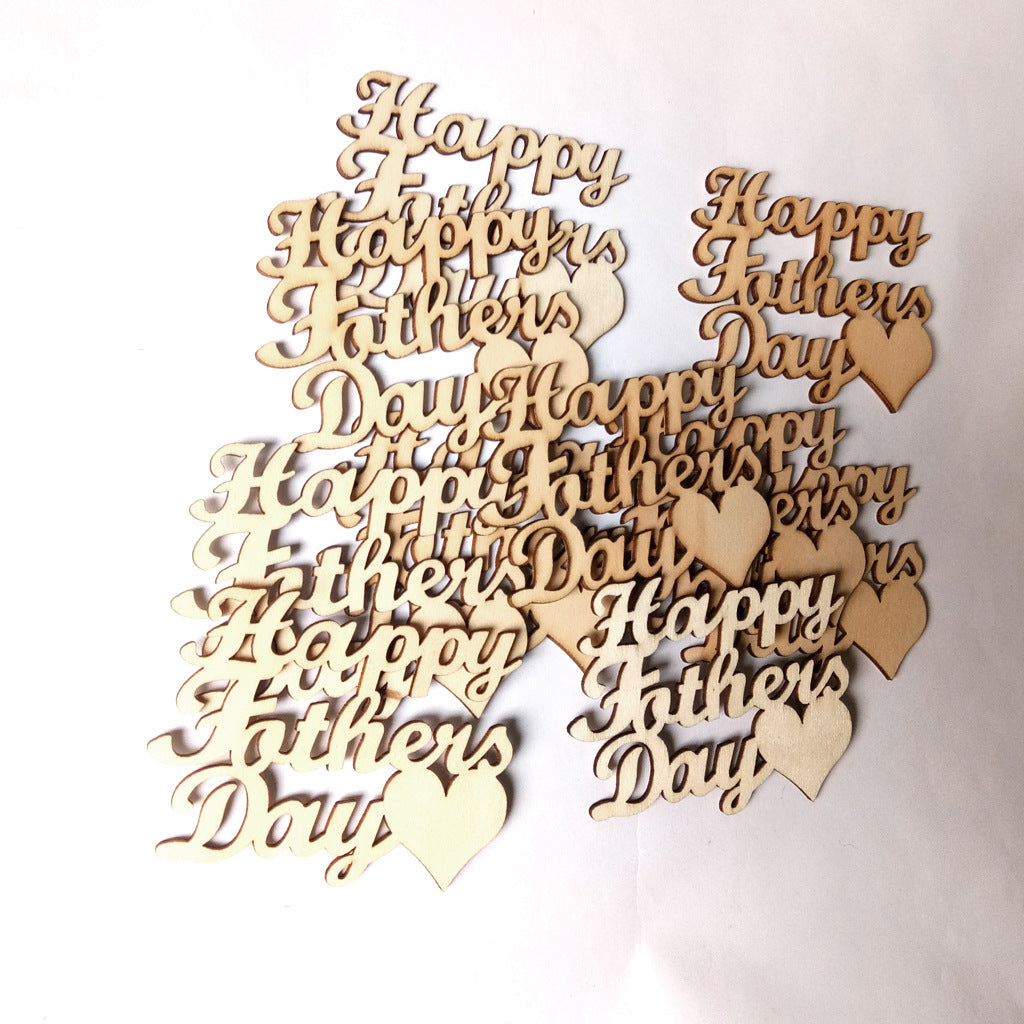 Happy
Fathers
Happy
Fathers
Day
Happy
Fathers
Day
Happy
Fathers
Day
Happy
Fathers
Happy
Fathers
Day
Happy
Fathers
Day
Happy